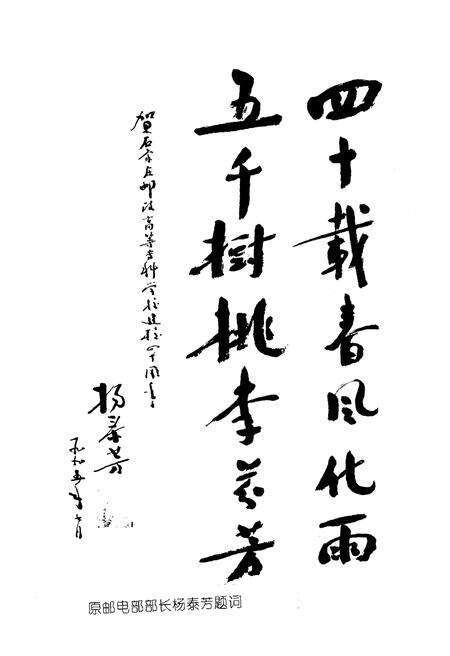 四十載春风化雨
五千樹桃李芬芳
贺石家庄邮政高等专科学校建校四十周年
杨泰芳
原邮电部部长杨泰芳题词